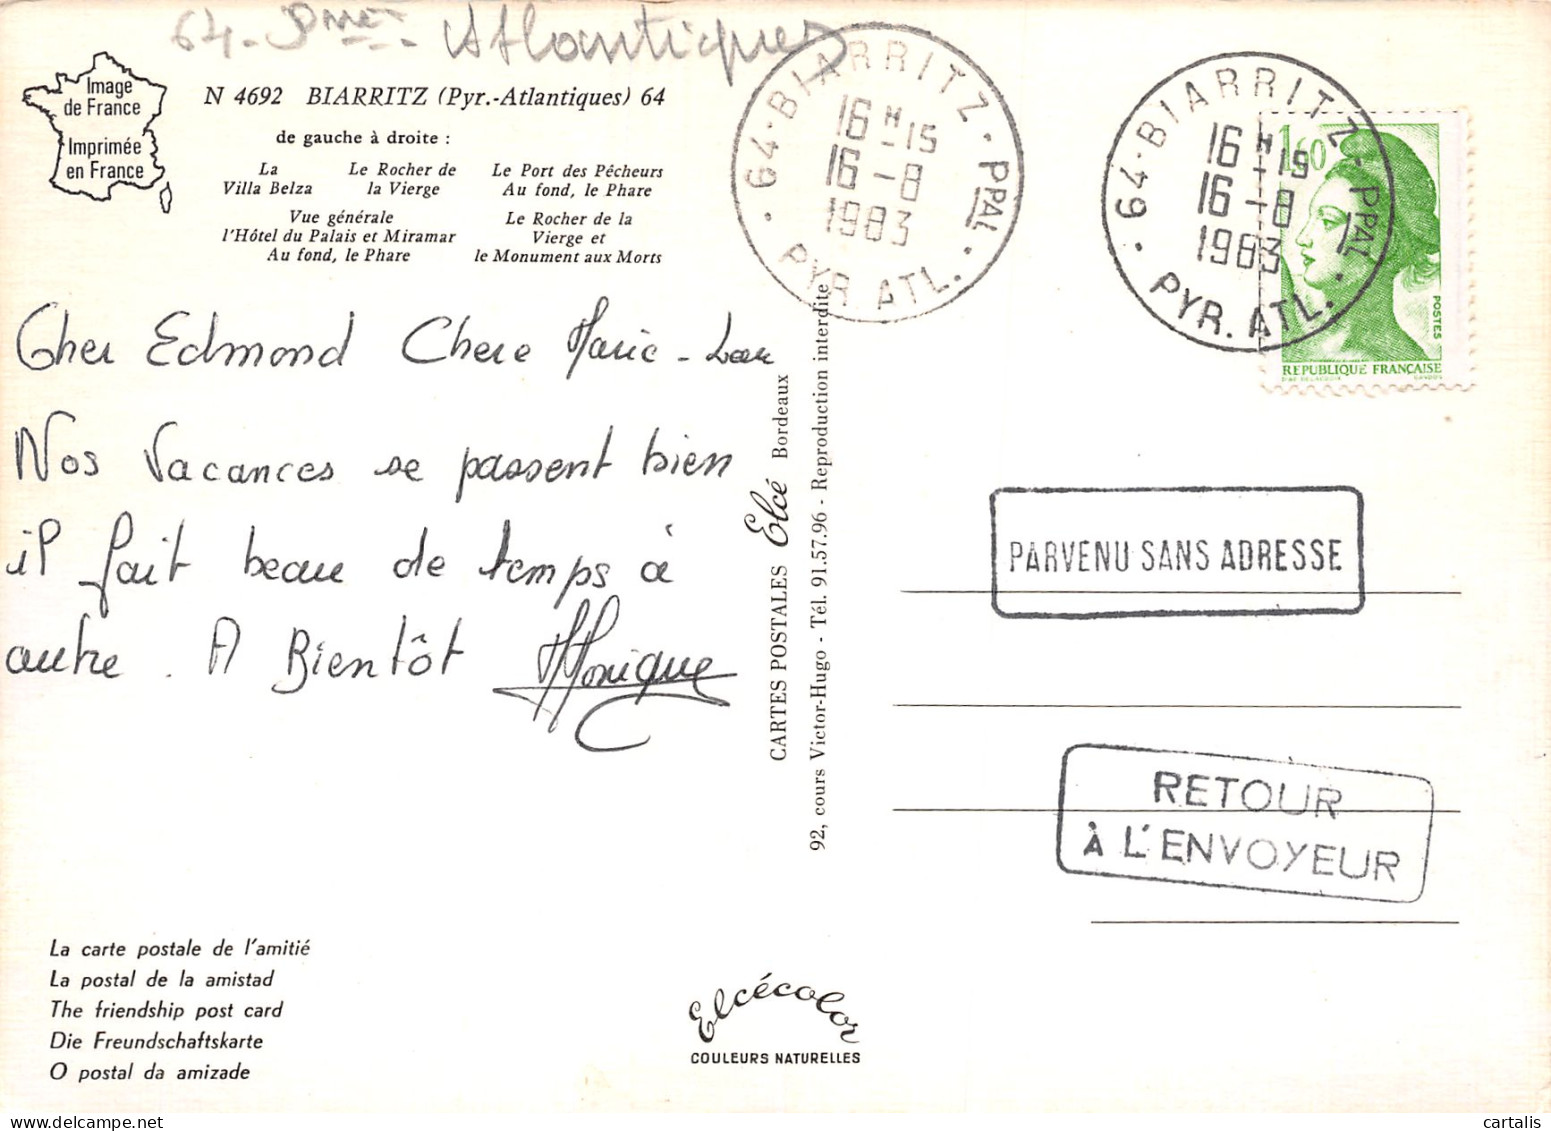 64. Pmet. Atlantiques
Image
de France
Imprimée
en France
N 4692 BIARRITZ (Pyr.-Atlantiques) 64
de gauche à droite :
La
Villa Belza
Le Rocher de
la Vierge
Le Port des Pêcheurs
Au fond, le Phare
Vue générale
l'Hôtel du Palais et Miramar
Au fond, le Phare
Le Rocher de la
Vierge et
le Monument aux Morts
64 · BIARRITZ · PPAL · PYR. ATL. ·
16 H 15
16 -8
1983
64 · BIARRITZ · PPAL · PYR. ATL. ·
16 H 15
16 -8
1983
1,60
POSTES
REPUBLIQUE FRANÇAISE
Cher Edmond Chere Marie-Lou
Nos Vacances se passent bien
il fait beau de temps à
autre. A Bientôt Monique
CARTES POSTALES Elcé Bordeaux
92, cours Victor-Hugo - Tél. 91.57.96 - Reproduction interdite
PARVENU SANS ADRESSE
RETOUR
À L'ENVOYEUR
La carte postale de l'amitié
La postal de la amistad
The friendship post card
Die Freundschaftskarte
O postal da amizade
Elcécolor
COULEURS NATURELLES
cartalis